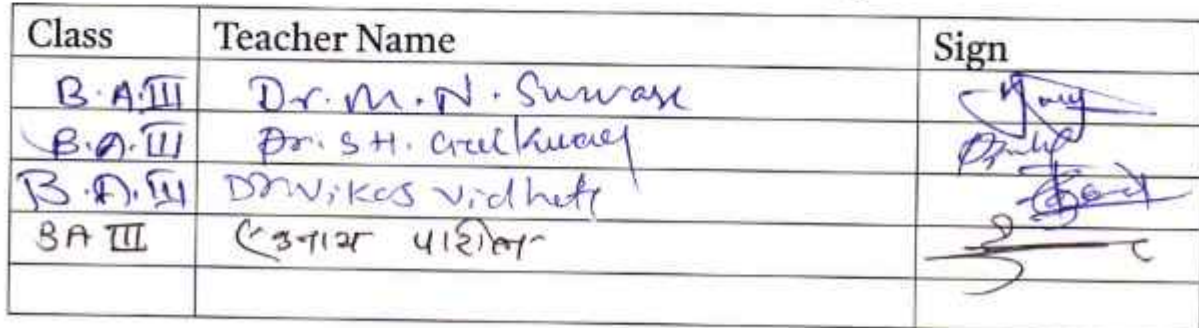 Class Teacher Name Sign
B.A.III Dr. M. N. Survase
B.A.III Dr. S H.
B.A.III Dr Vikas Vidhate
BA III पाटील